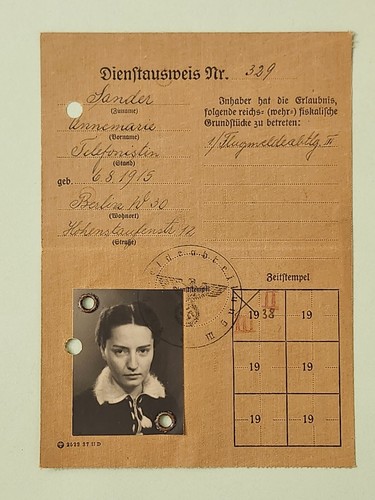 Dienstausweis Nr. 329
Sander
(Zuname)
Annemarie
(Vorname)
Telefonistin
(Stand)
geb. 6.8.1915
Berlin W 30
(Wohnort)
Hohenstaufenstr. 12
(Straße)
Inhaber hat die Erlaubnis,
folgende reichs= (wehr=) fiskalische
Grundstücke zu betreten:
Flugmeldeabtlg. II
Zeitstempel
II
1938
19
III
19
19
19
19